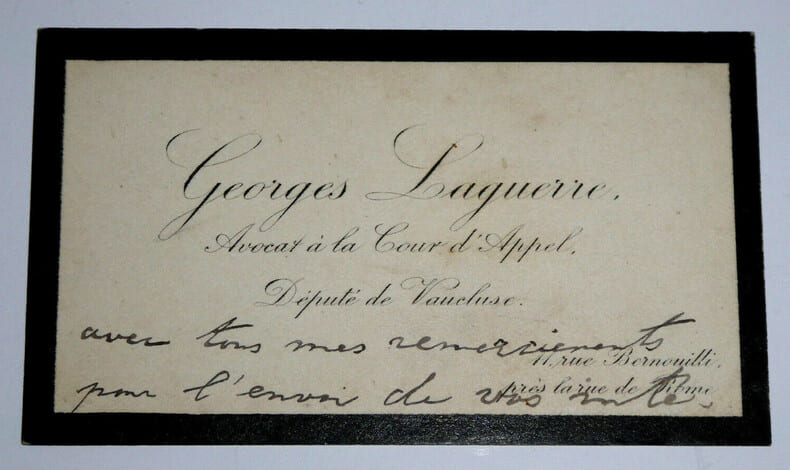 Georges Laguerre.
Avocat à la Cour d'Appel.
Député de Vaucluse.
avec tous mes remerciements
11, rue Bernouilli,
près la rue de Rome
pour l'envoi de vos